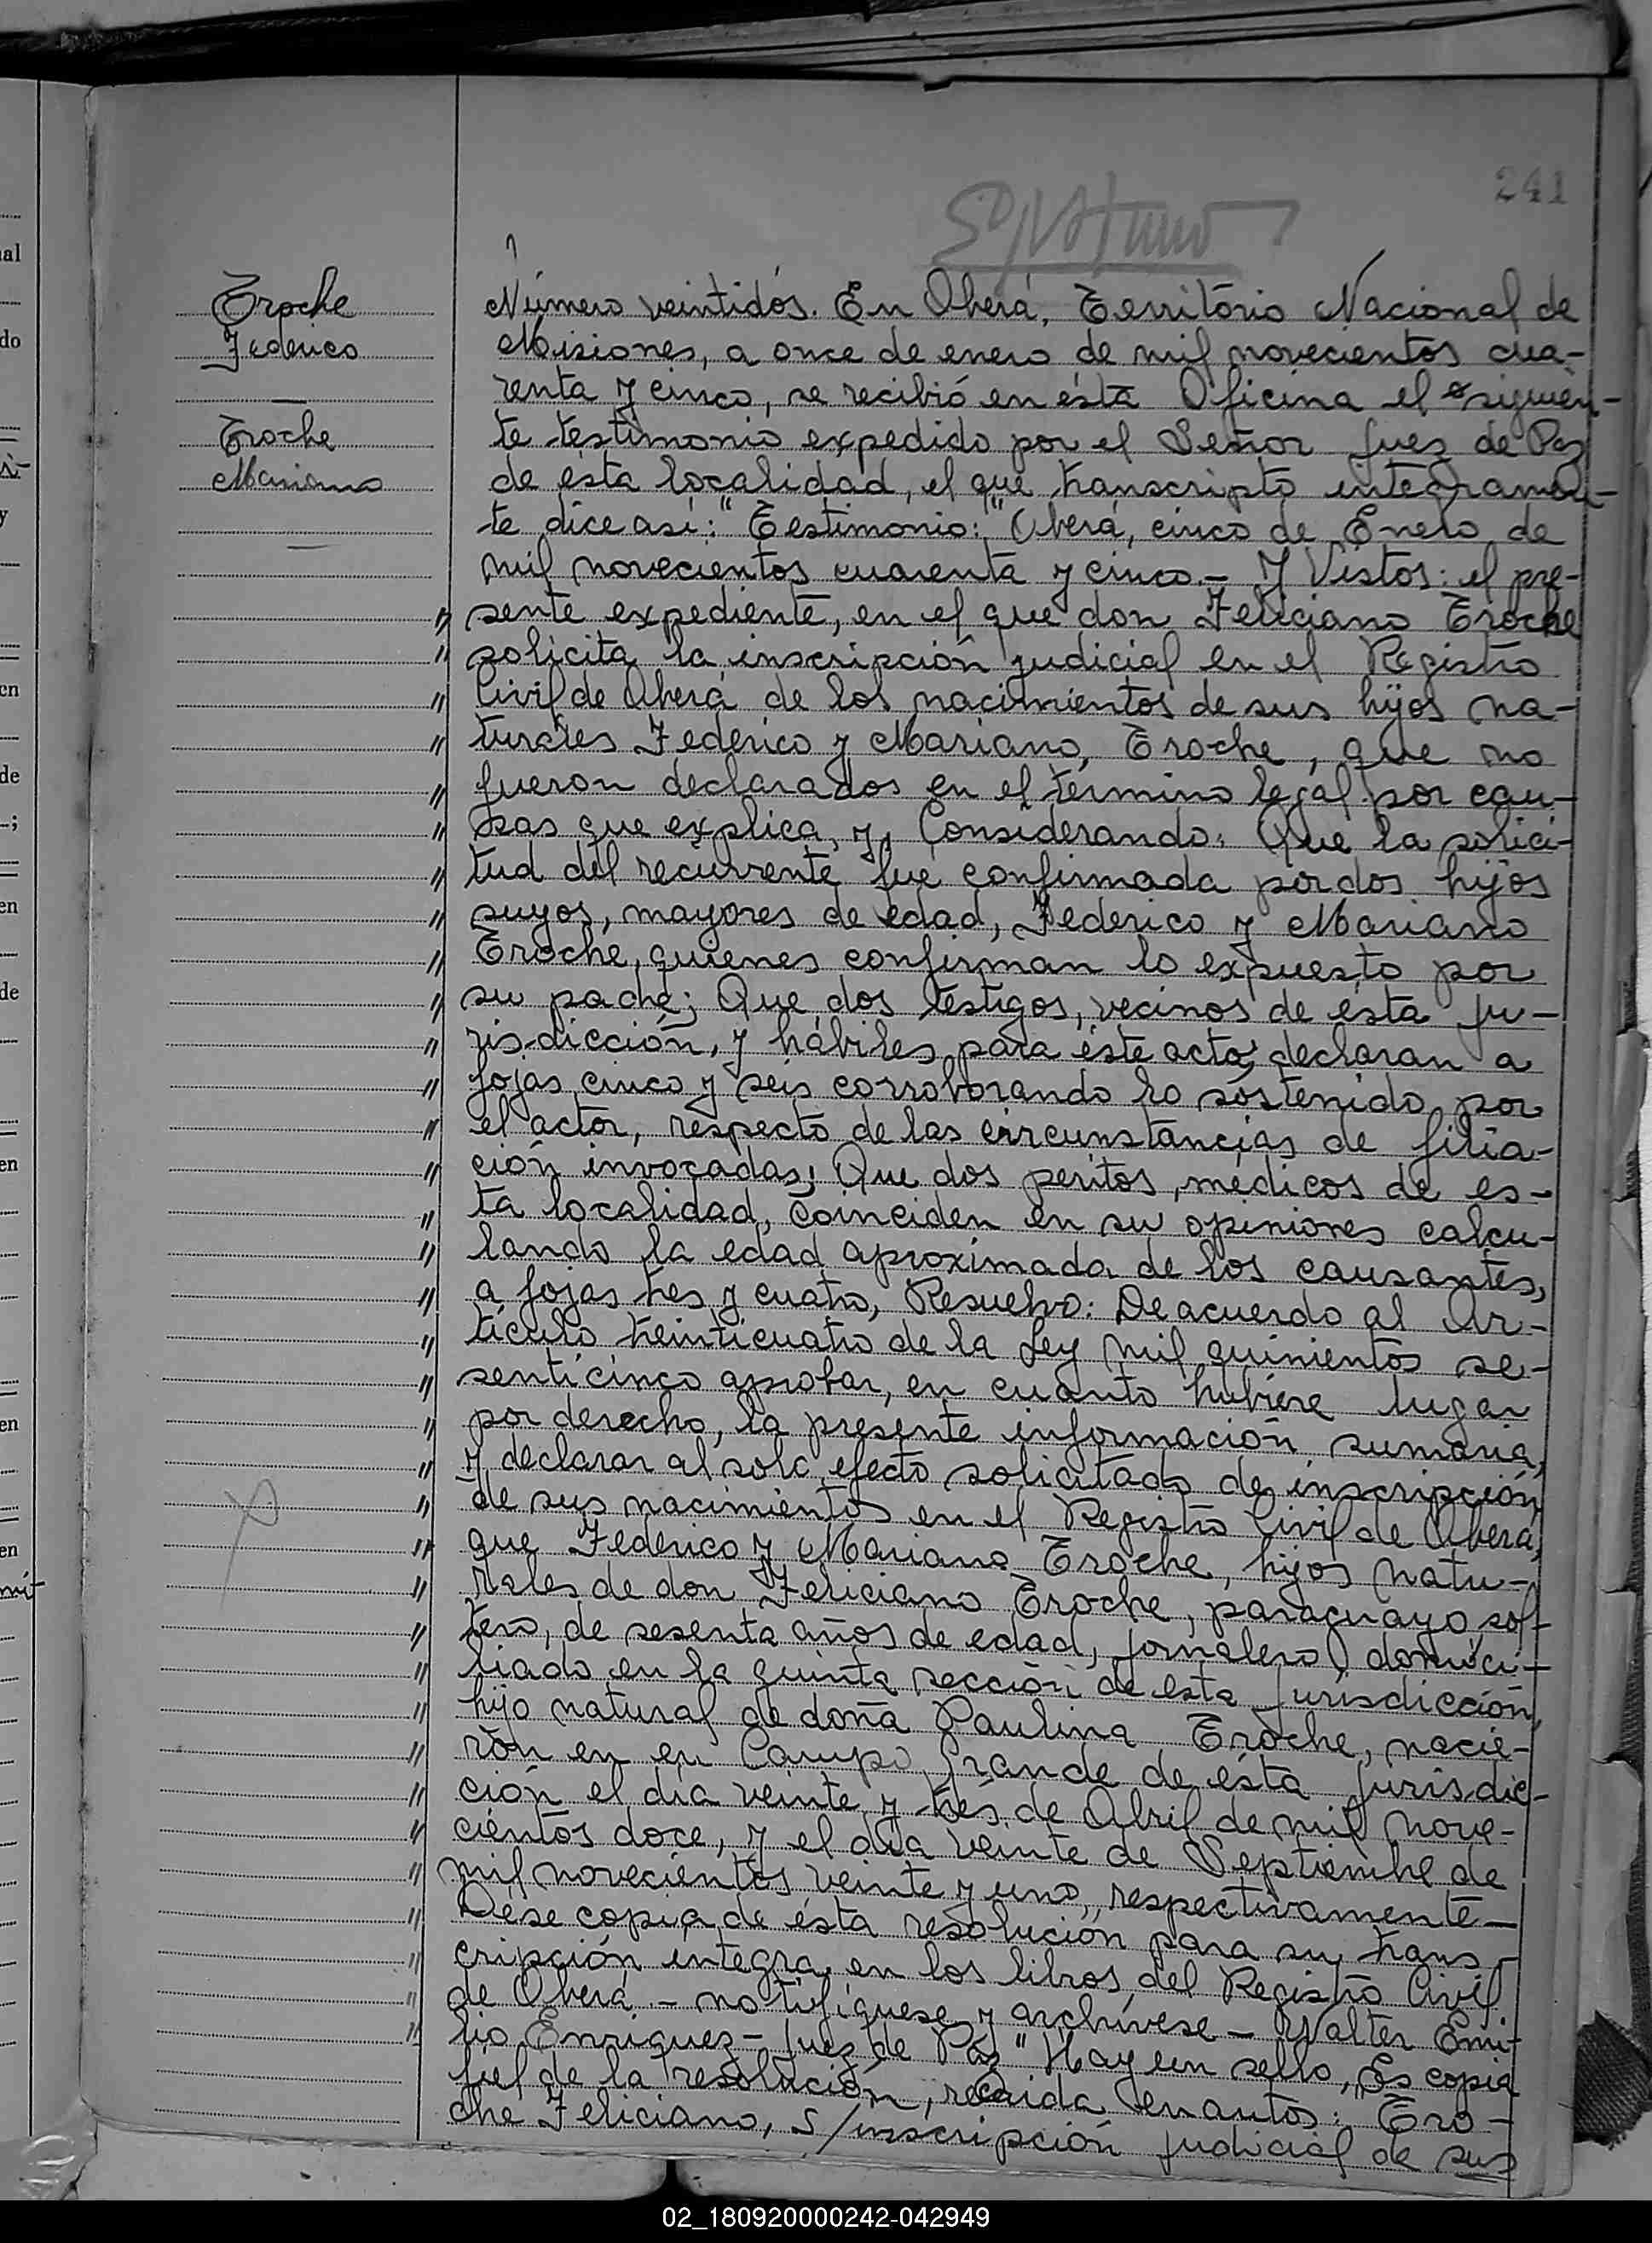 241
Número veintidós. En Oberá, Território Nacional de
Troche
Misiones, a once de enero de mil novecientos cua-
Federico
renta y cinco, se recibió en ésta Oficina el siguien-
te testimonio expedido por el Señor Juez de Paz
Troche
de ésta localidad, el que transcripto integramen-
Mariano
te dice así: "Testimonio:" "Oberá, cinco de Enero de
mil novecientos cuarenta y cinco.- Y Vistos: el pre-
" sente expediente, en el que don Feliciano Troche
" solicita la inscripción judicial en el Registro
" Civil de Oberá de los nacimientos de sus hijos na-
" turales Federico y Mariano, Troche, que no
" fueron declarados en el término legal por cau-
" sas que explica, y, Considerando: Que la solici-
" tud del recurrente fué confirmada por dos hijos
" suyos, mayores de edad, Federico y Mariano
" Troche, quienes confirman lo expuesto por
" su padre; Que dos testigos, vecinos de ésta ju-
" risdicción, y hábiles para éste acto, declaran a
" fojas cinco y seis corroborando lo sostenido por
" el actor, respecto de las circunstancias de filia-
" ción invocadas; Que dos peritos, médicos de es-
" ta localidad, coinciden en su opiniones calcu-
" lando la edad aproximada de los causantes,
" a fojas tres y cuatro, Resuelvo: De acuerdo al Ar-
" tículo treinticuatro de la Ley mil quinientos se-
" senticinco aprobar, en cuanto hubiere lugar
" por derecho, la presente información sumaria,
" y declarar al solo efecto solicitado de inscripción
" de sus nacimientos en el Registro Civil de Oberá,
" que Federico y Mariano Troche, hijos natu-
" rales de don Feliciano Troche, paraguayo, sol-
" tero, de sesenta años de edad, jornalero, domici-
" liado en la quinta sección de esta jurisdicción,
" hijo natural de doña Paulina Troche, nacie-
" ron en en Campo Grande de ésta jurisdic-
" ción el día veinte y tres de Abril de mil nove-
" cientos doce, y el día veinte de Septiembre de
" mil novecientos veinte y uno, respectivamente-
" Dése copia de ésta resolución para su trans-
" cripción integra en los libros del Registro Civil
" de Oberá.- notifíquese y archívese - Walter Emi-
" lio Enriquez - Juez de Paz" Hay un sello, "Es copia
fiel de la resolución, recaida en autos: Tro-
che Feliciano, s/inscripción judicial de sus
02_180920000242-042949